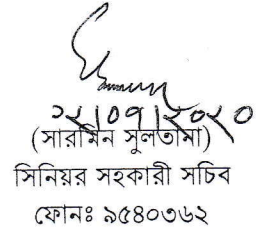 ১২/০৭/২০২০
(সারমিন সুলতানা)
সিনিয়র সহকারী সচিব
ফোনঃ ৯৫৪০৩৬২